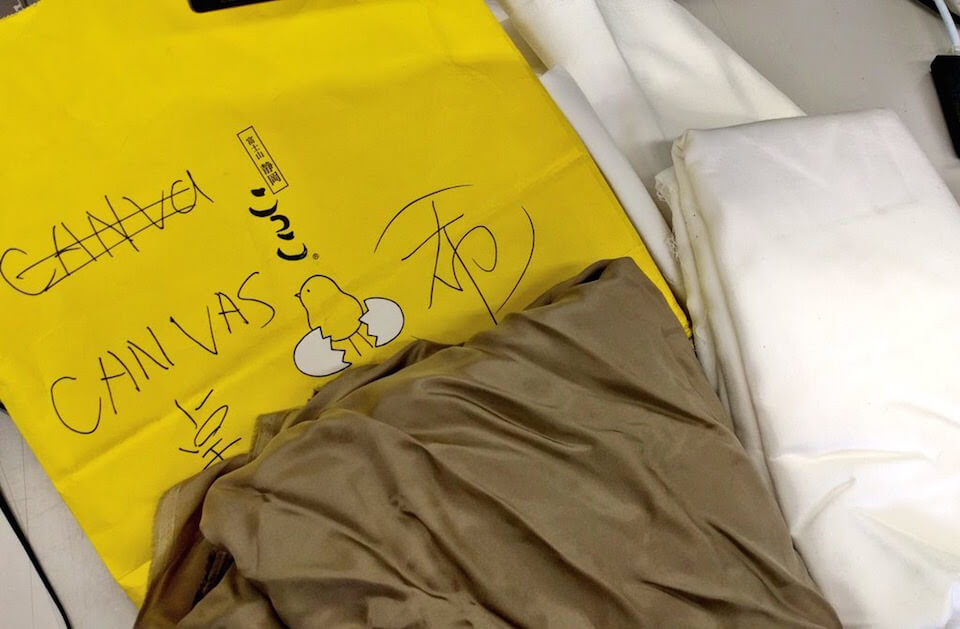 富士山 静岡
こっこ®
CANVa
CANVAS
(布)